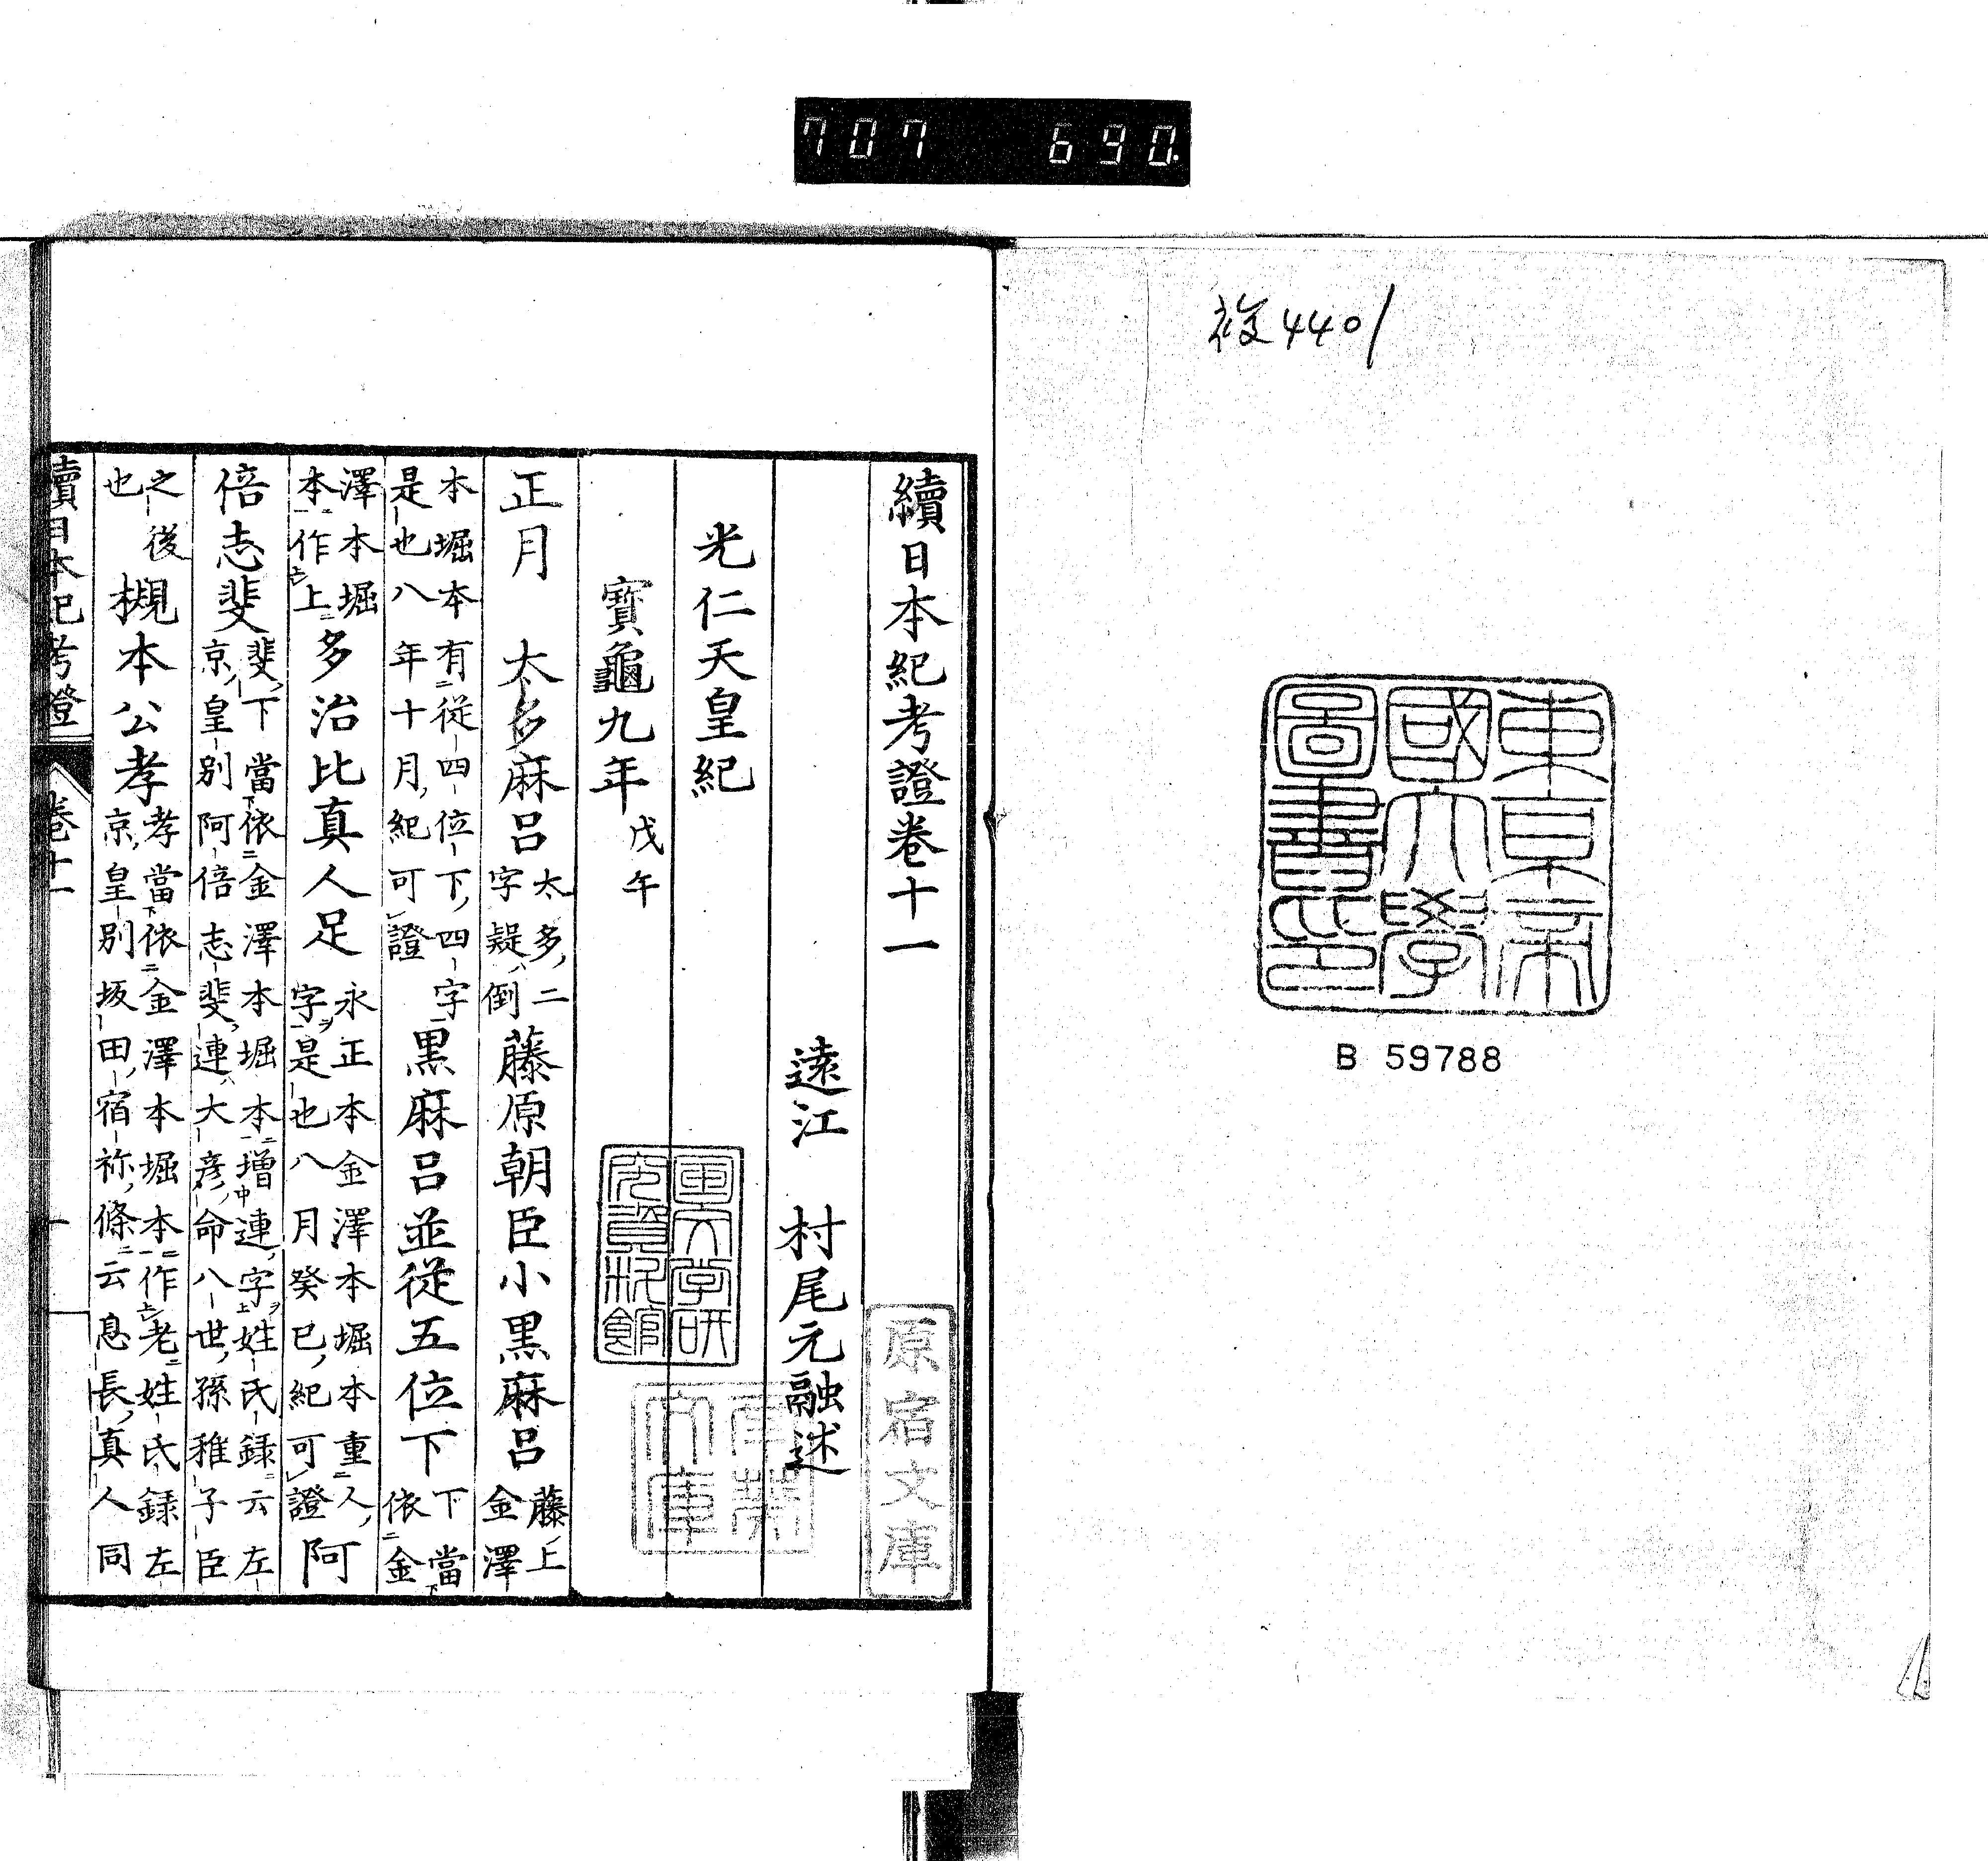 707 690.
複4401
東京帝
國大學
圖書印
B 59788
續日本紀考證卷十一
原宿文庫
遠江 村尾元融述
光仁天皇紀
寶龜九年戊午
正月 太多麻呂太多、二字疑倒藤原朝臣小黑麻呂藤上金澤
本堀本有從四位下、四字是也八年十月、紀可證黑麻呂並從五位下下當依金
澤本堀本作上多治比真人足永正本金澤本堀本重人、字是也八月癸巳、紀可證阿
倍志斐斐下當依金澤本堀本增連、字姓氏録云左京皇別阿倍志斐連、大彦命八世孫稚子臣
之後也槻本公孝孝當依金澤本堀本作老姓氏録左京皇別坂田宿祢條云息長真人同
續日本紀考證 卷十一 一